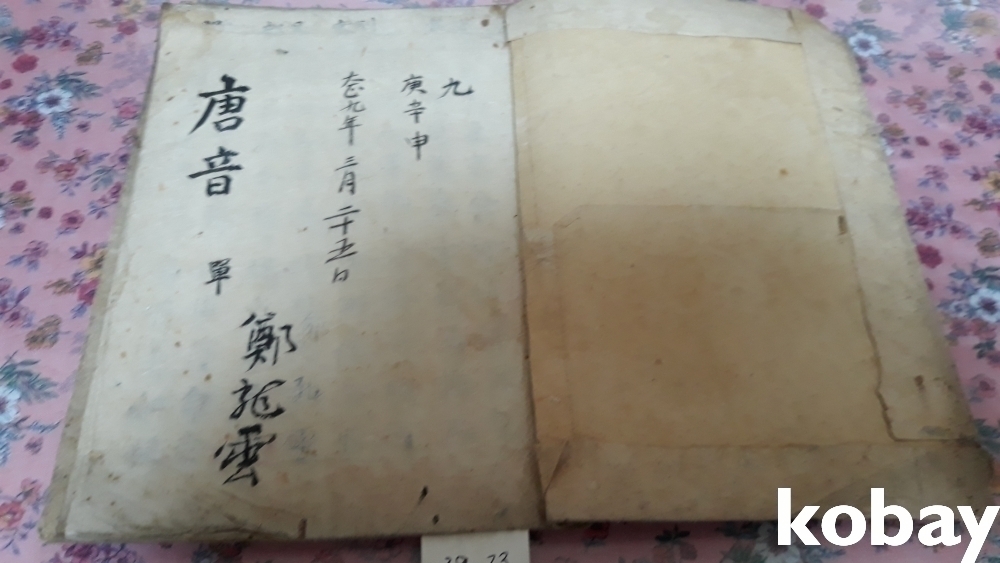 九
庚辛申
大正九年三月二十五日
唐音 單
鄭龍雲
kobay